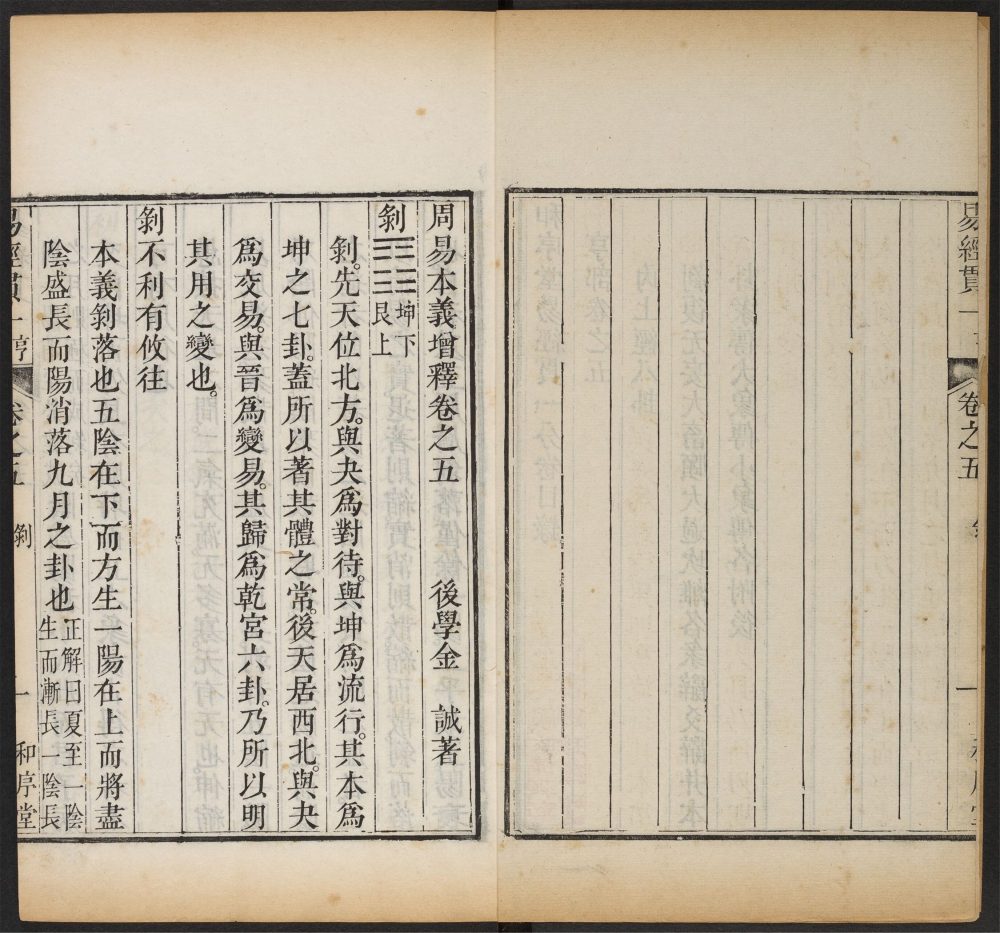 易經貫一
卷之五
一
周易本義增釋卷之五 後學金 誠著
剝 坤下
艮上
剝。先天位北方。與夬爲對待。與坤爲流行。其本爲
坤之七卦。蓋所以著其體之常。後天居西北。與夬
爲交易。與晉爲變易。其歸爲乾宮六卦。乃所以明
其用之變也。
剝不利有攸往
本義剝落也五陰在下而方生一陽在上而將盡
陰盛長而陽消落九月之卦也正解曰夏至一陰
生而漸長一陰長
易經貫一 卷之五 剝 一 和序堂